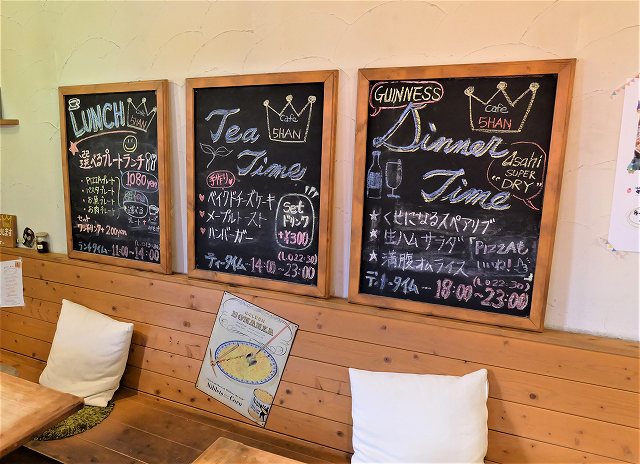 LUNCH
5HAN
選べるプレートランチ
1080yen
・PIZZAプレート
・パスタプレート
・お魚プレート
・お肉プレート
セット
ワンドリンク+200yen
ランチタイム―11:00~14:00
Cafe
5HAN
Tea
Time
手作り
♥ベイクドチーズケーキ
♥メープルトースト
♥ハンバーガー
Set
ドリンク
+¥300
(LO22:30)
ティータイム―14:00~23:00
GUINNESS
Cafe
5HAN
Dinner
Time
Asahi
SUPER
"DRY"
★くせになるスペアリブ
★生ハムサラダ
★満腹オムライス
PIZZAも
いいね!
(LO22:30)
ディナータイム―18:00~23:00
GOLDEN
BONANZA
Niblets Corn